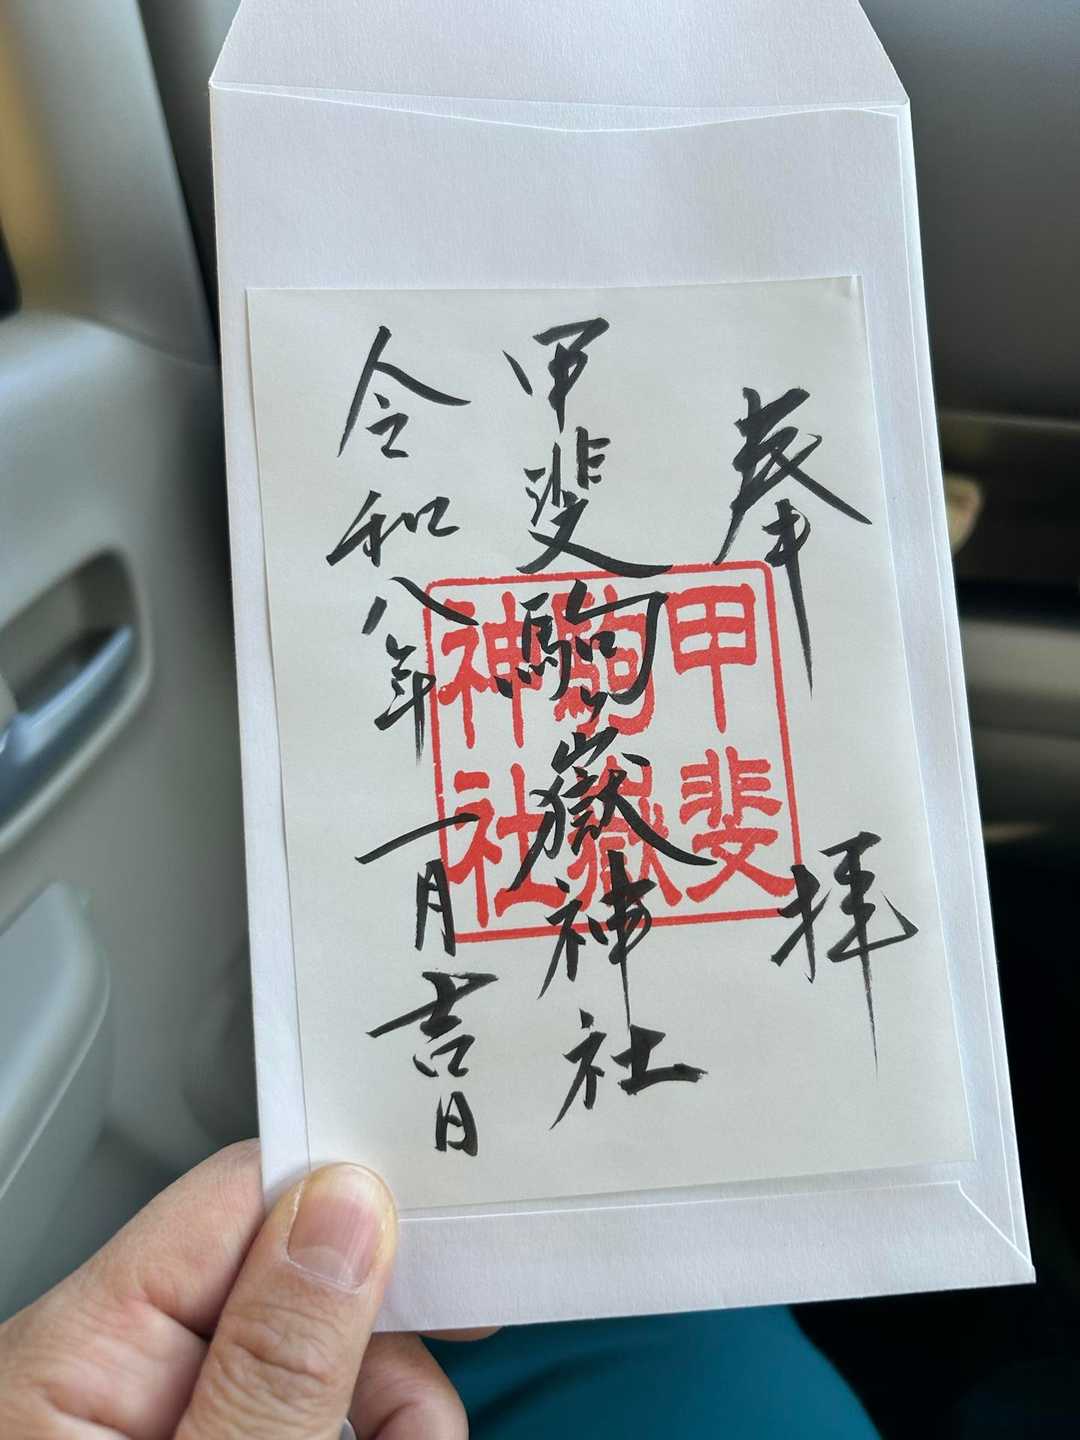 奉拝
甲斐駒ヶ嶽神社
令和八年一月吉日
甲斐
駒嶽
神社